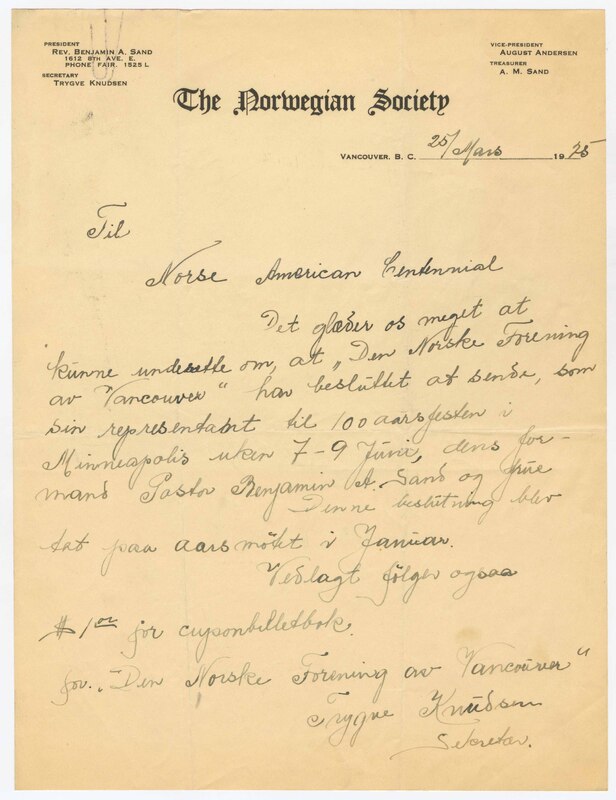 PRESIDENT
REV. BENJAMIN A. SAND
1612 8TH AVE. E.
PHONE FAIR. 1525 L
SECRETARY
TRYGVE KNUDSEN
VICE-PRESIDENT
AUGUST ANDERSEN
TREASURER
A. M. SAND
The Norwegian Society
VANCOUVER, B. C. 25/Mars 1925
Til
Norse American Centennial
Det glæder os meget at
kunne underrette om, at „Den Norske Forening
av Vancouver" har besluttet at sende, som
sin representant til 100 aarsfesten i
Minneapolis uken 7-9 Juni, dens for-
mand Pastor Benjamin A. Sand og frue
Denne beslutning blev
tat paa aarsmötet i Januar.
Vedlagt følger ogsaa
$1 00 for cuponbilletbok.
for. „Den Norske Forening av Vancouver"
Trygve Knudsen
Sekretær.